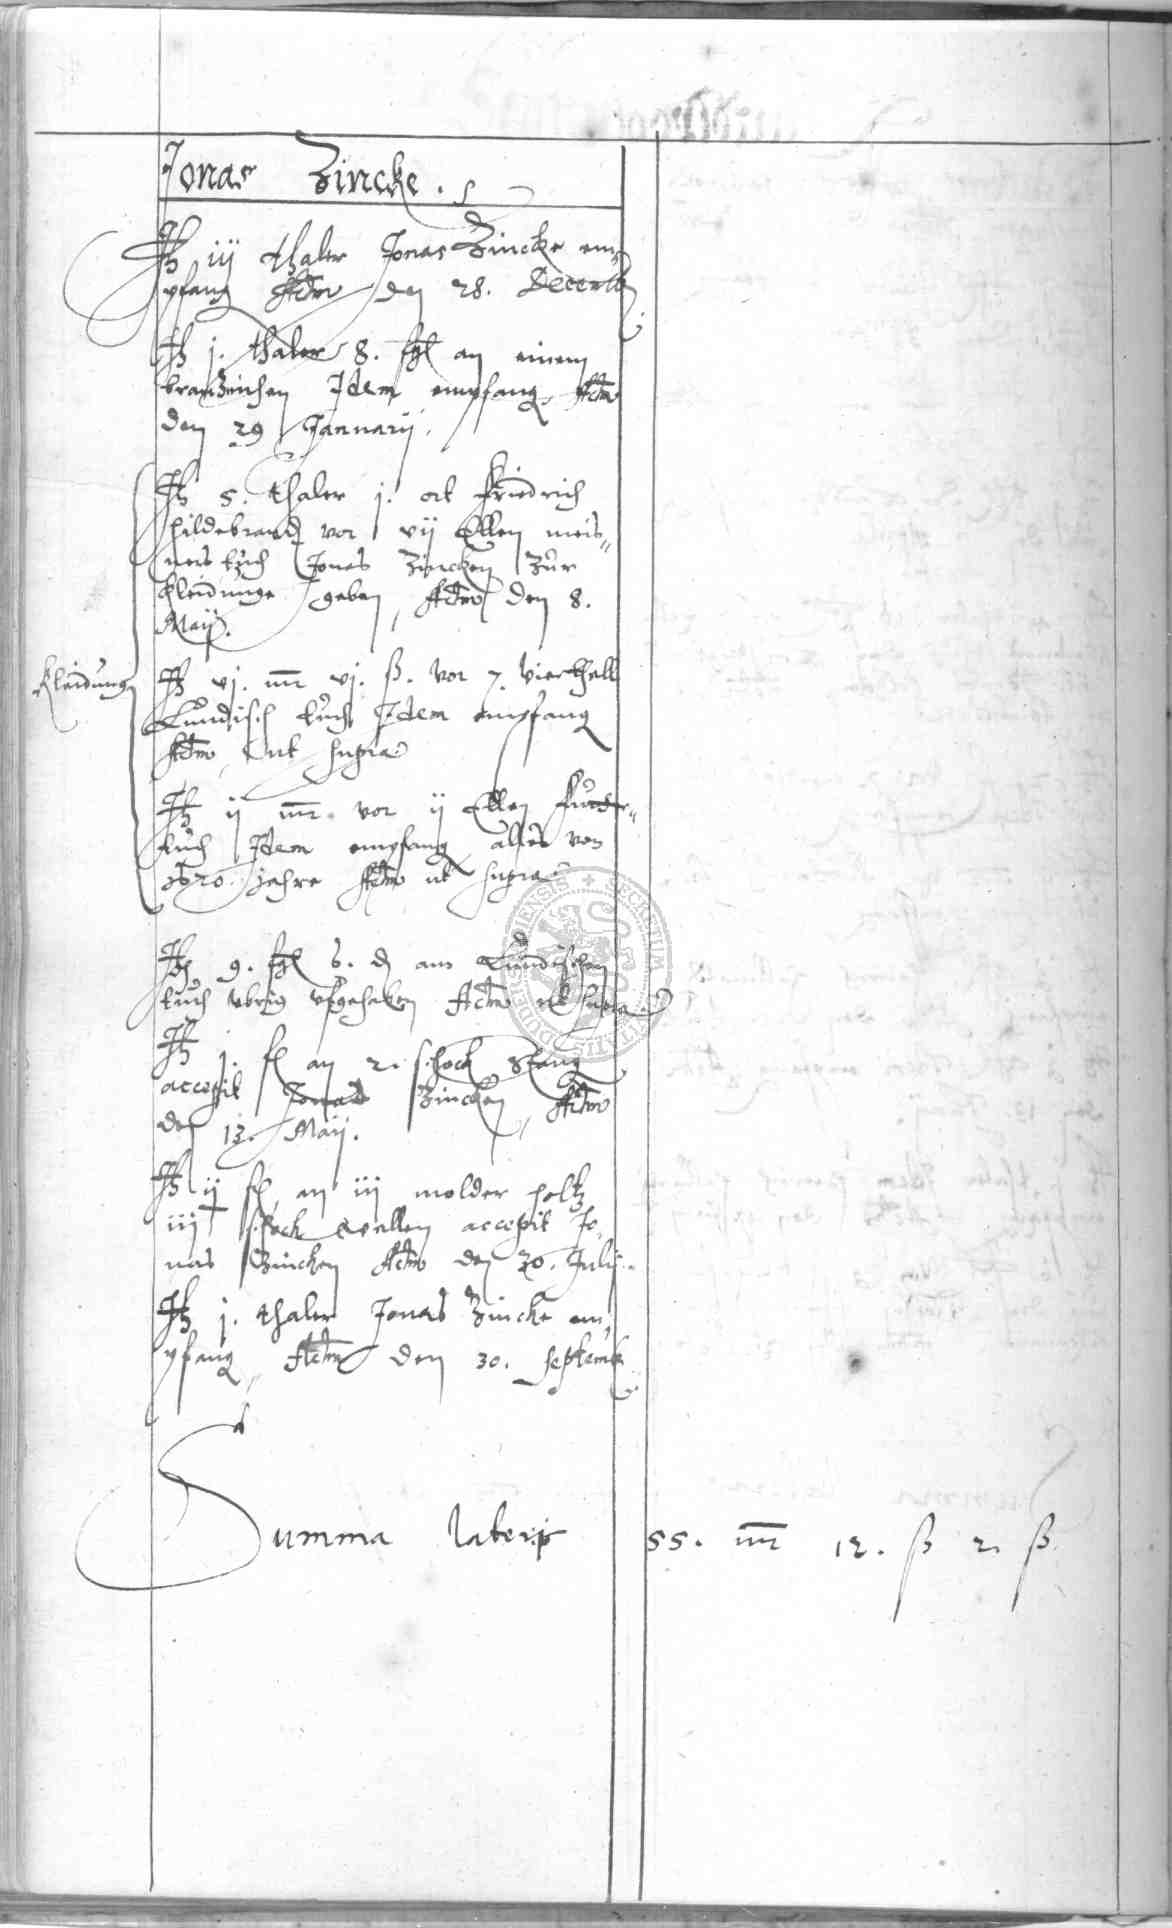 Jonas Zincke.
It iij thaler Jonas Zincke em¬
pfang Actm den 28. Decemb
It j. thaler 8. fgl an einem
Idem empfang, Actm
den 29 Januarij.
It 5. thaler j. ort Friedrich
Hildebrand vor vij Ellen meis¬
ners tuch Jonas Zincken zur
Kleidunge geben, Actm den 8.
Maij.
Kleidung
It vj. mr vj. ß. vor 7. Vierthell
Lundisch tuch Idem empfang
Actm ut supra
It ij mr. vor ij Ellen Futter¬
tuch Idem empfang alles von
jahre Actm ut supra
It 9. fgl 6. d am Lundischen
tuch ubrig Actm ut supra
It j. fl an 2. schock Stang
accepit Jonas Zincken, Actm
den 13. Maij.
It ij fl an iij molder holtz
iij schock wellen accepit Jo¬
nas Zincken Actm den 30. Julij.
It j. thaler Jonas Zincke em¬
pfang, Actm den 30. Septemb
Summa lateris 55. mr 12. ß 2. ß.
SECRETUM CIVITATIS